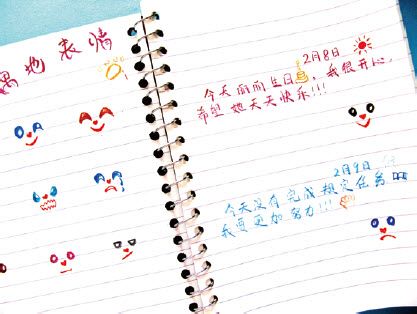 地表情
2月8日
今天丽丽生日，我很开心，
希望她天天快乐!!!
2月9日
今天没有完成规定任务
我要更加努力!!!